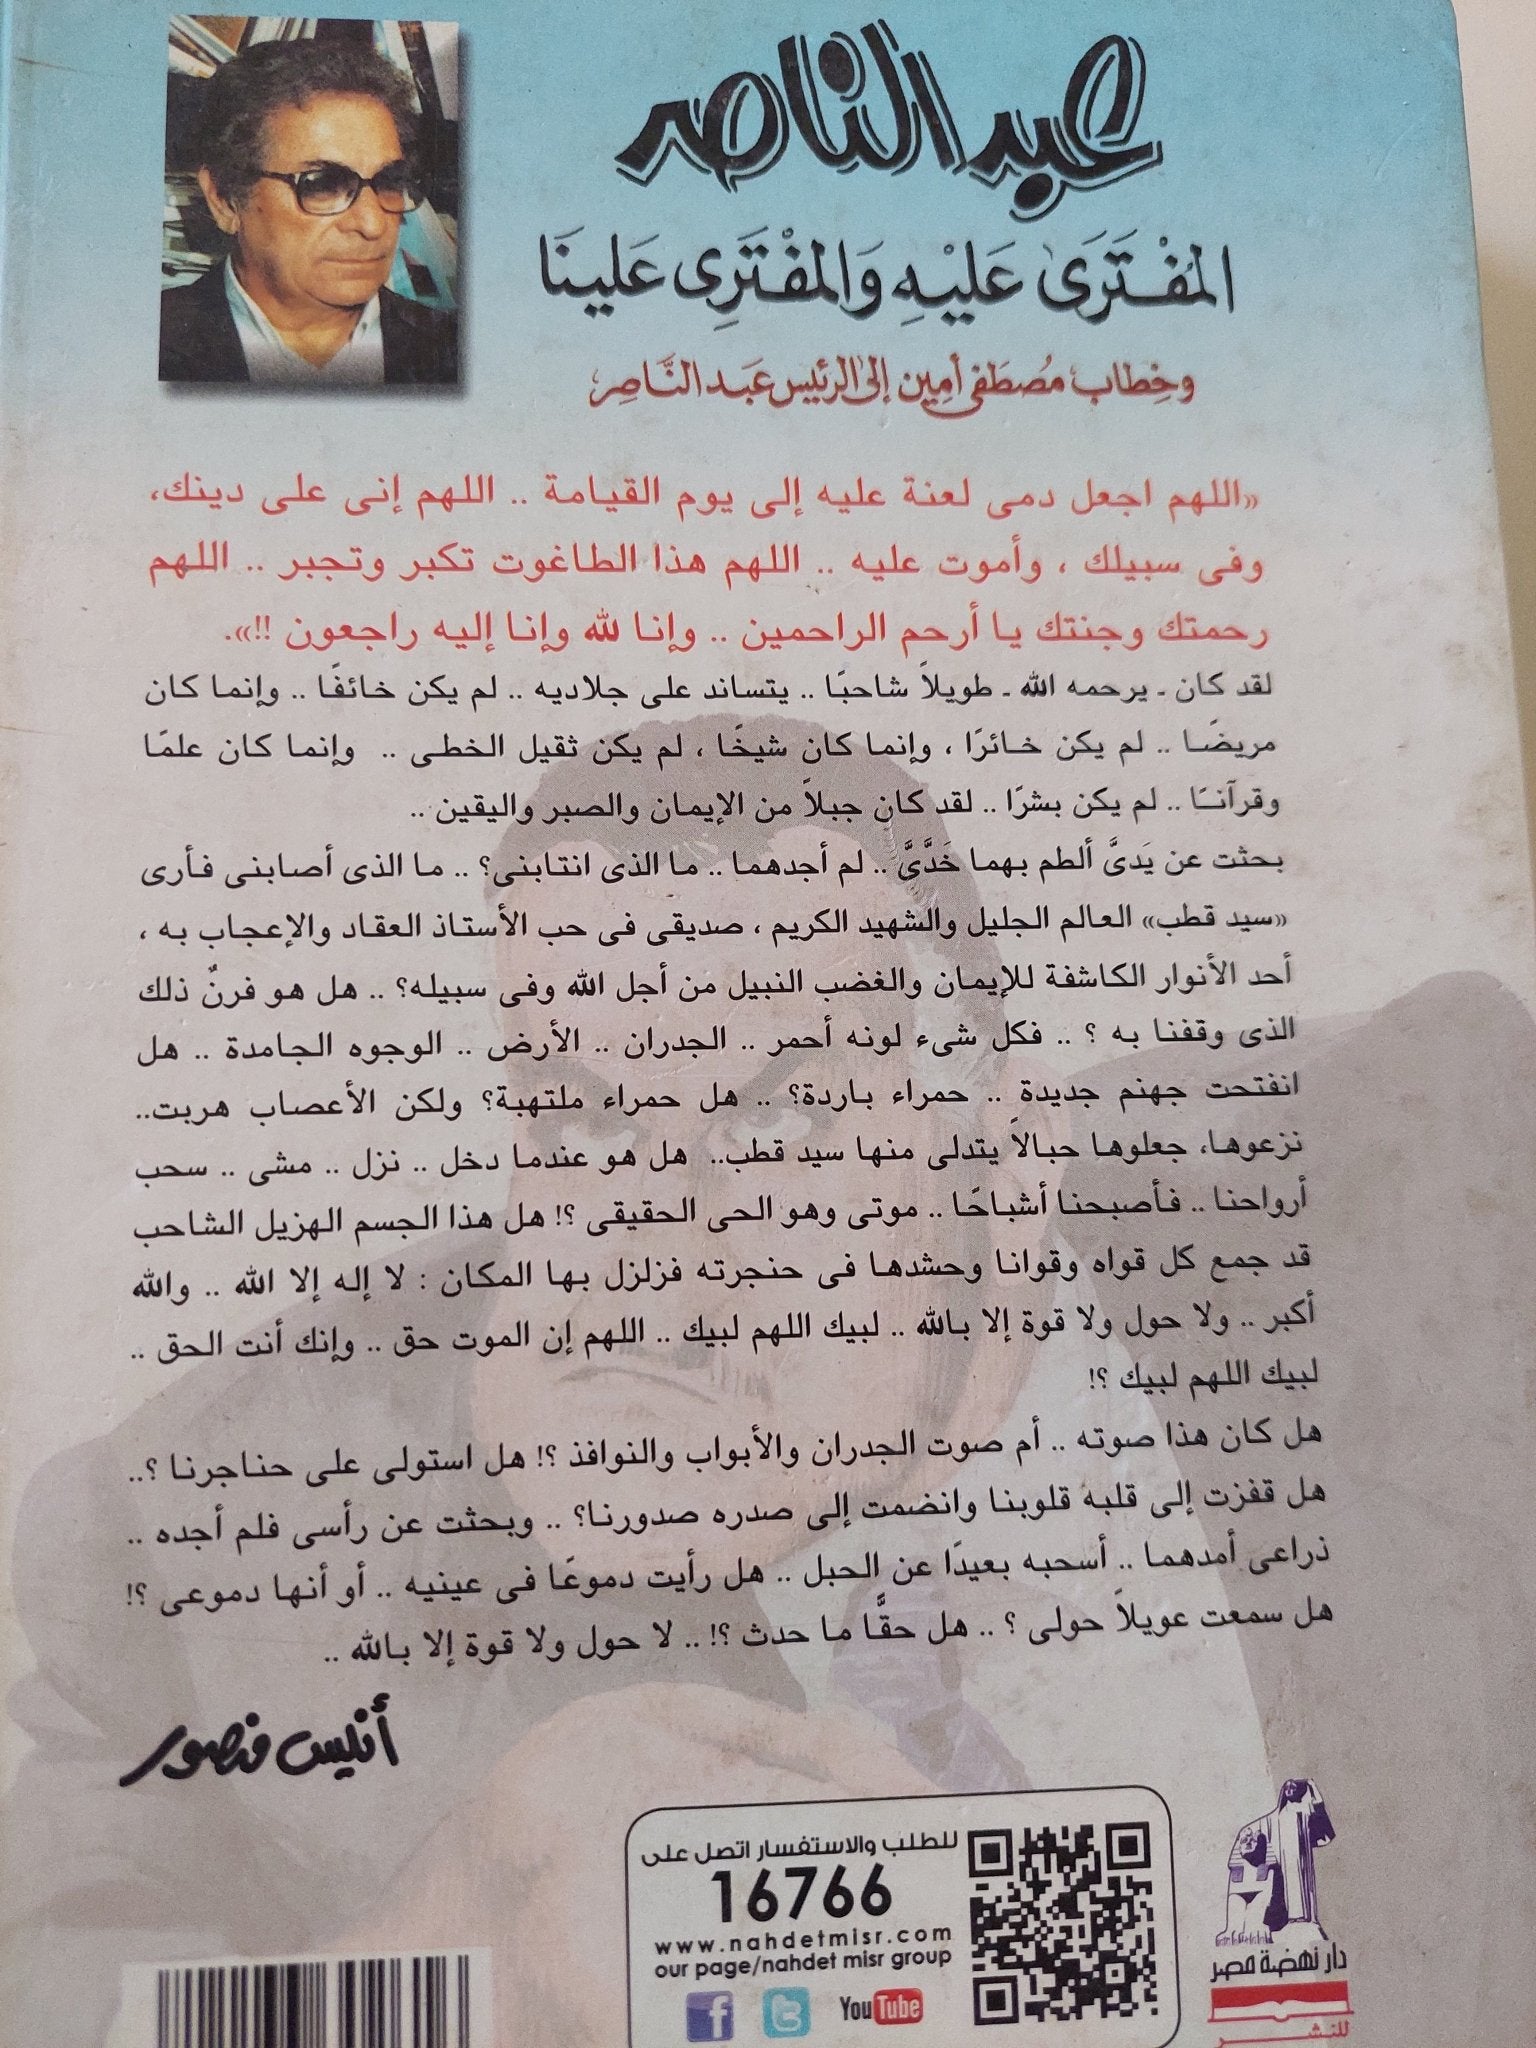 عبد الناصر
المُفْتَرَى عَلَيْهِ وَالمُفْتَرِى عَلينَا
وخِطاب مُصطَفى أمِين إلى الرئيس عَبد النَّاصِر
«اللهم اجعل دمى لعنة عليه إلى يوم القيامة .. اللهم إنى على دينك،
وفى سبيلك ، وأموت عليه .. اللهم هذا الطاغوت تكبر وتجبر .. اللهم
رحمتك وجنتك يا أرحم الراحمين .. وإنا لله وإنا إليه راجعون !!».
لقد كان ـ يرحمه الله ـ طويلاً شاحبًا .. يتساند على جلاديه .. لم يكن خائفًا .. وإنما كان
مريضًا .. لم يكن خائرًا ، وإنما كان شيخًا ، لم يكن ثقيل الخطى .. وإنما كان علمًا
وقرآنًا .. لم يكن بشرًا .. لقد كان جبلاً من الإيمان والصبر واليقين ..
بحثت عن يَدىَّ ألطم بهما خَدَّىَّ .. لم أجدهما .. ما الذى انتابنى؟ .. ما الذى أصابنى فأرى
«سيد قطب» العالم الجليل والشهيد الكريم ، صديقى فى حب الأستاذ العقاد والإعجاب به ،
أحد الأنوار الكاشفة للإيمان والغضب النبيل من أجل الله وفى سبيله؟ .. هل هو فرنٌ ذلك
الذى وقفنا به ؟ .. فكل شىء لونه أحمر .. الجدران .. الأرض .. الوجوه الجامدة .. هل
انفتحت جهنم جديدة .. حمراء باردة؟ .. هل حمراء ملتهبة؟ ولكن الأعصاب هربت..
نزعوها، جعلوها حبالاً يتدلى منها سيد قطب.. هل هو عندما دخل .. نزل .. مشى .. سحب
أرواحنا .. فأصبحنا أشباحًا .. موتى وهو الحى الحقيقى ؟! هل هذا الجسم الهزيل الشاحب
قد جمع كل قواه وقوانا وحشدها فى حنجرته فزلزل بها المكان : لا إله إلا الله .. والله
أكبر .. ولا حول ولا قوة إلا بالله .. لبيك اللهم لبيك .. اللهم إن الموت حق .. وإنك أنت الحق ..
لبيك اللهم لبيك ؟!
هل كان هذا صوته .. أم صوت الجدران والأبواب والنوافذ ؟! هل استولى على حناجرنا ؟..
هل قفزت إلى قلبه قلوبنا وانضمت إلى صدره صدورنا؟ .. وبحثت عن رأسى فلم أجده ..
ذراعى أمدهما .. أسحبه بعيدًا عن الحبل .. هل رأيت دموعًا فى عينيه .. أو أنها دموعى ؟!
هل سمعت عويلاً حولى ؟ .. هل حقًّا ما حدث ؟! .. لا حول ولا قوة إلا بالله ..
أنيس منصور
للطلب والاستفسار اتصل على
16766
www.nahdetmisr.com
our page/nahdet misr group
f t YouTube
دار نهضة مصر
للنشر